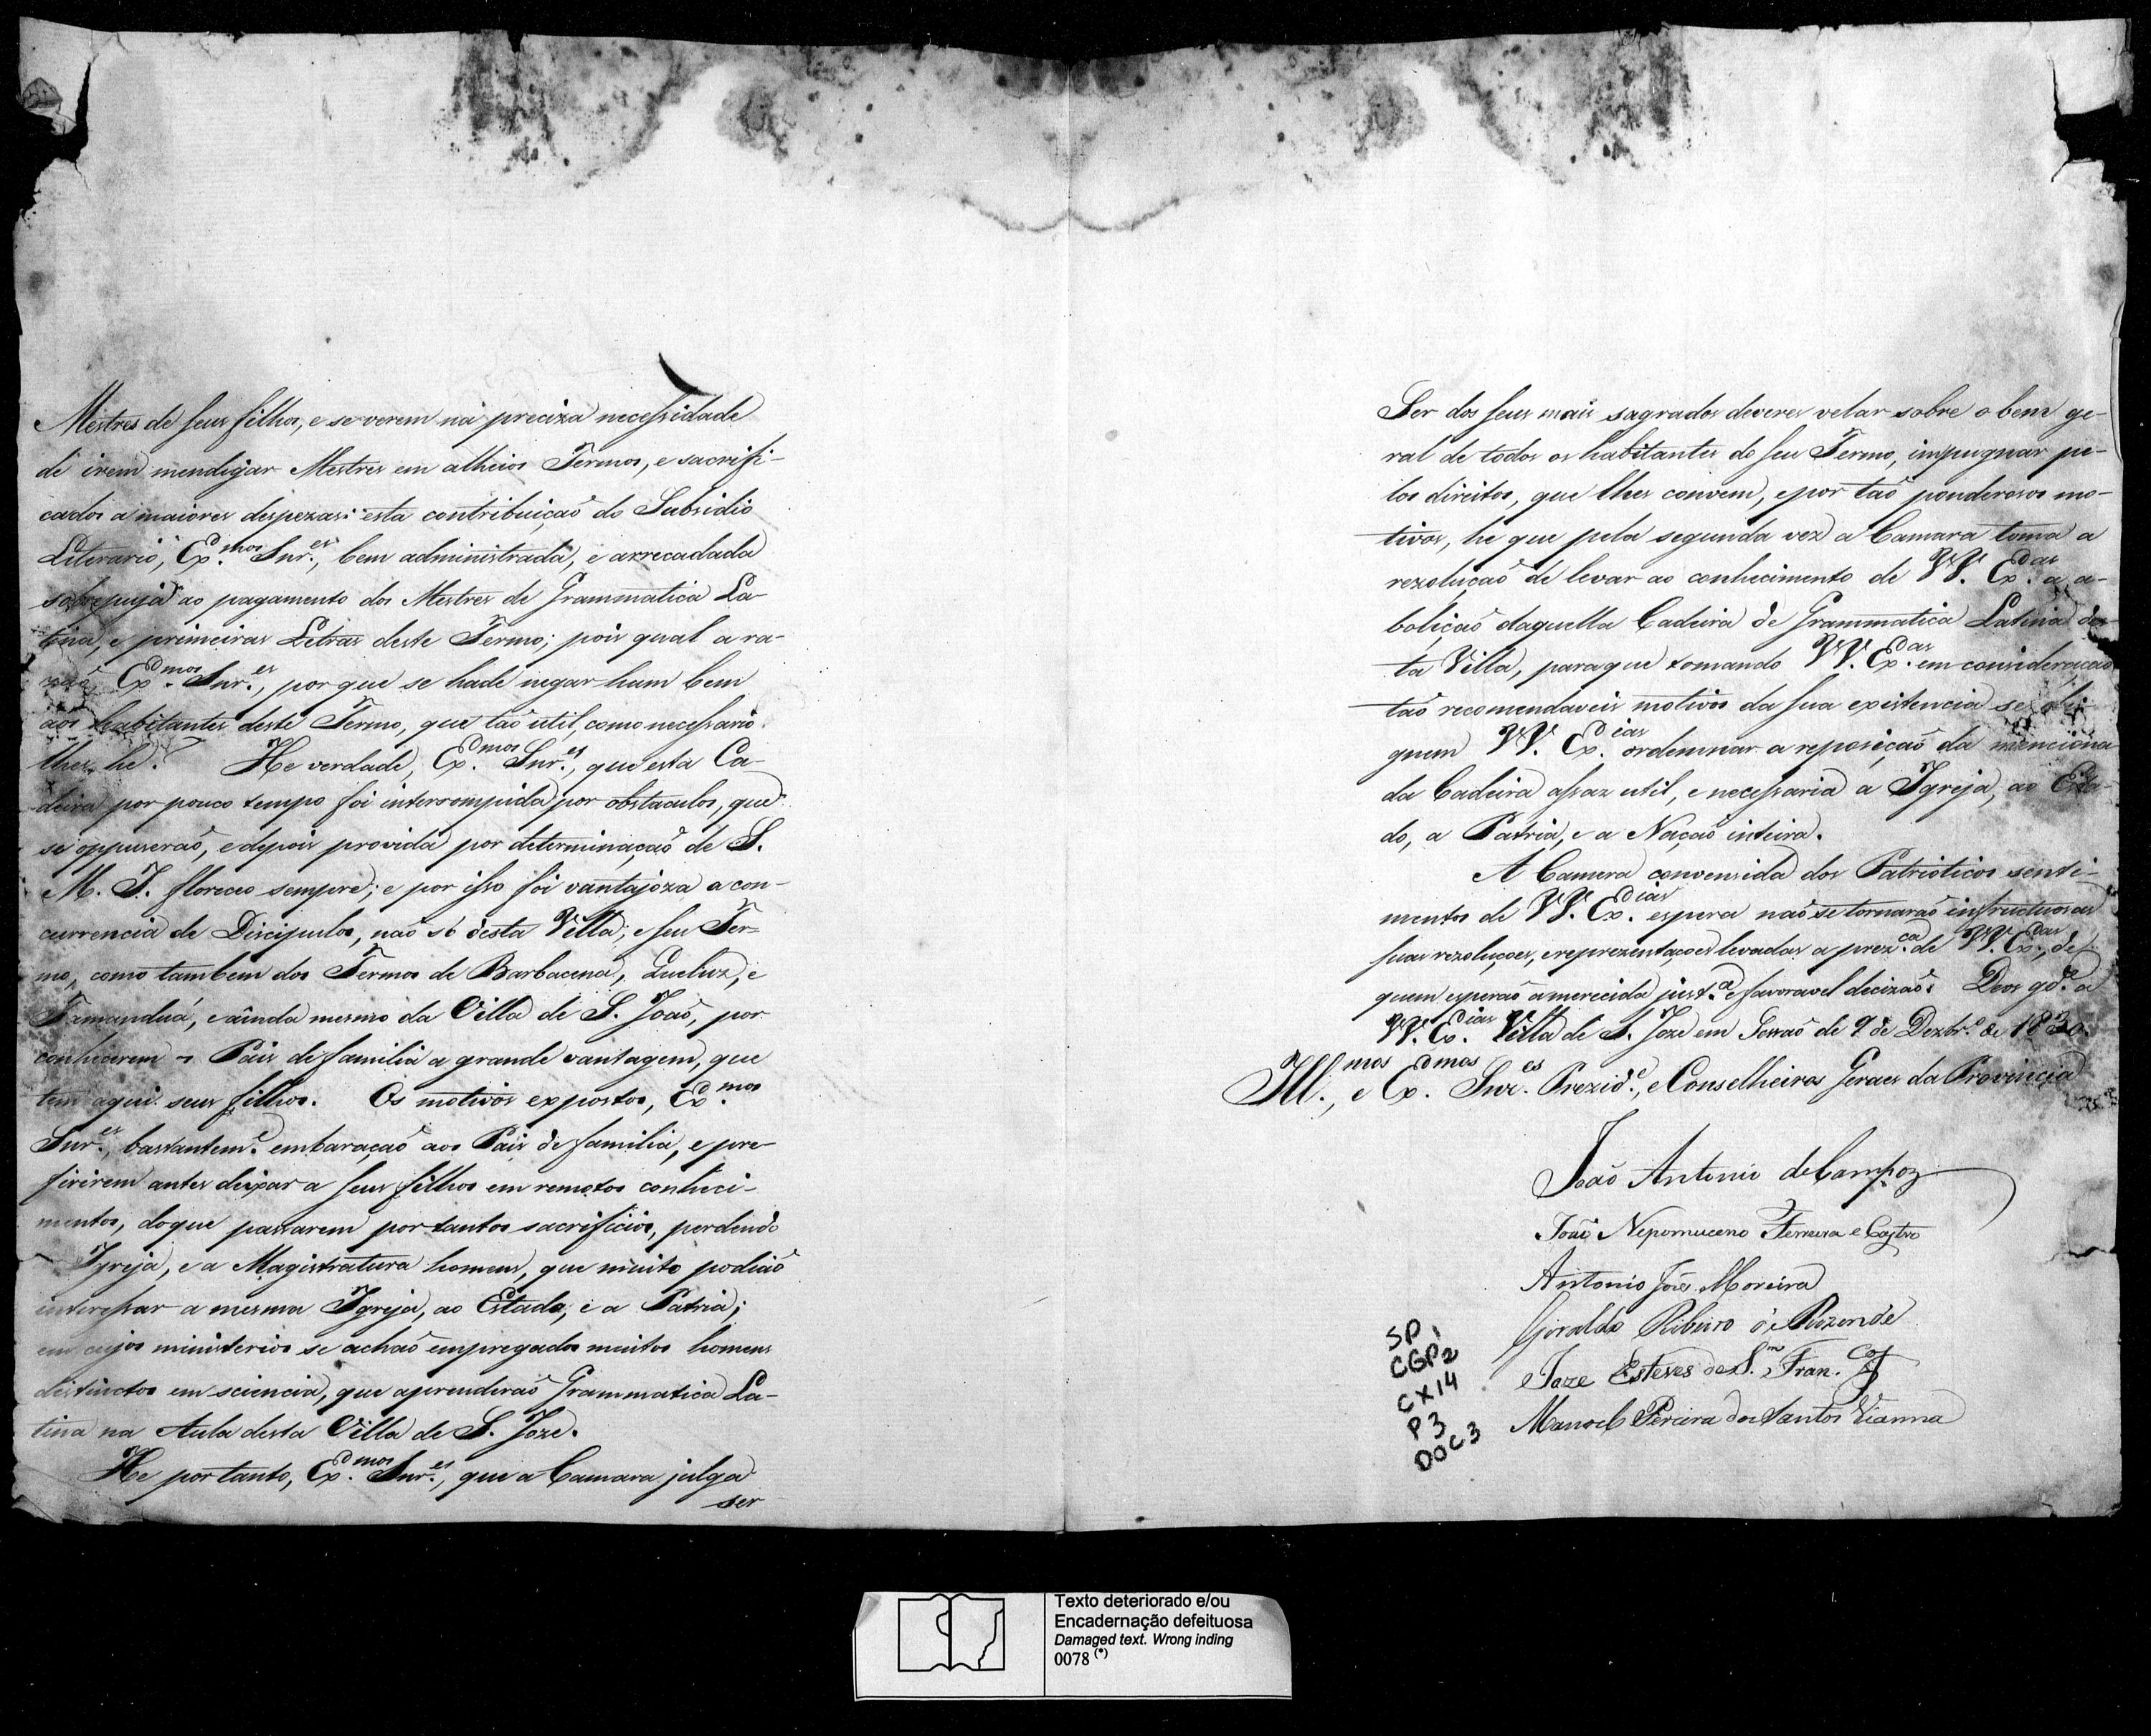 Mestres de seus filhos, e se verem na preciza necessidade
de irem mendigar Mestres em alheios Termos, e sacrifi-
cados a maiores despezas: esta contribuiçaõ do Subsidio
Literario, Ex.mos Snr.es, bem administrada, e arrecadada
sobrepuja ao pagamento dos Mestres de Grammatica La-
tina, e primeiras Letras deste Termo; pois qual a ra-
zaõ, Ex.mos Snr.es, por que se hade negar hum bem
aos habitantes deste Termo, que taõ util, como necessario
lhes he? He verdade, Ex.mos Snr.es, que esta Ca-
deira por pouco tempo foi interrompida por obstaculos, que
se oppuseraõ, e depois provida por determinaçaõ de S.
M. I. floreceo sempre; e por isso foi vantajoza a con-
currencia de Discipulos, naõ só desta Villa, e seu Ter=
mo, como tambem dos Termos de Barbacena, Queluz, e
Tamanduá, e ainda mesmo da Villa de S. Joaõ, por
conhecerem os Pais de familia a grande vantagem, que
tem aqui seus filhos. Os motivos expostos, Ex.mos
Snr.es, bastantem.e embaraçaõ aos Pais de familia, e pre-
firirem antes deixar a seus filhos em remotos conheci-
mentos, do que passarem por tantos sacrificios, perdendo
Igreja, e a Magistratura homens, que muito podiaõ
interessar a mesma Igreja, ao Estado, e a Patria;
em cujos ministerios se achaõ empregados muitos homens
distinctos em sciencia, que aprenderaõ Grammatica La-
tina na Aula desta Villa de S. Joze.
He por tanto, Ex.mos Snr.es, que a Camara julga
ser
Ser dos seus mais sagrados deveres velar sobre o bem ge-
ral de todos os habitantes do seu Termo, impugnar pe-
los direitos, que lhes convem, e por taõ ponderosos mo-
tivos, he que pela segunda vez a Camara toma a
rezoluçaõ de levar ao conhecimento de VV. Ex.as a a-
boliçaõ daquella Cadeira de Grammatica Latina des-
ta Villa, para que tomando VV. Ex.as em consideraçaõ
taõ recomendaveis motivos da sua existencia se di-
gnem VV. Ex.ias ordemnar a reposiçaõ da menciona
da Cadeira assaz util, e necessaria a Igreja, ao Esta-
do, a Patria, e a Naçaõ inteira.
A Camera convensida dos Patrioticos senti-
mentos de VV. Ex.ias espera naõ se tornaraõ infructuosas
suas rezoluçoes, e reprezentaçoes levadas a prez.ca de VV. Ex.as, de
quem esperaõ a merecida just.a e favoravel decizaõ. Deos gd.e a
VV. Ex.ias Villa de S. Joze em Sessaõ de 9 de Dezbr.o de 1830.
Ill.mos, e Ex.mos Snr.es Prezid.e, e Conselheiros Geraes da Provincia
Joaõ Antonio de Campos
Joaõ Nepomuceno Ferreira e Castro
Antonio Joze Moreira
Geraldo Ribeiro de Rezende
Joze Esteves de S.m Fran.co
Manoel Pereira dos Santos Vianna
SP
CGP2
CX14
P3
DOC3
Texto deteriorado e/ou
Encadernação defeituosa
Damaged text. Wrong inding
0078 (*)